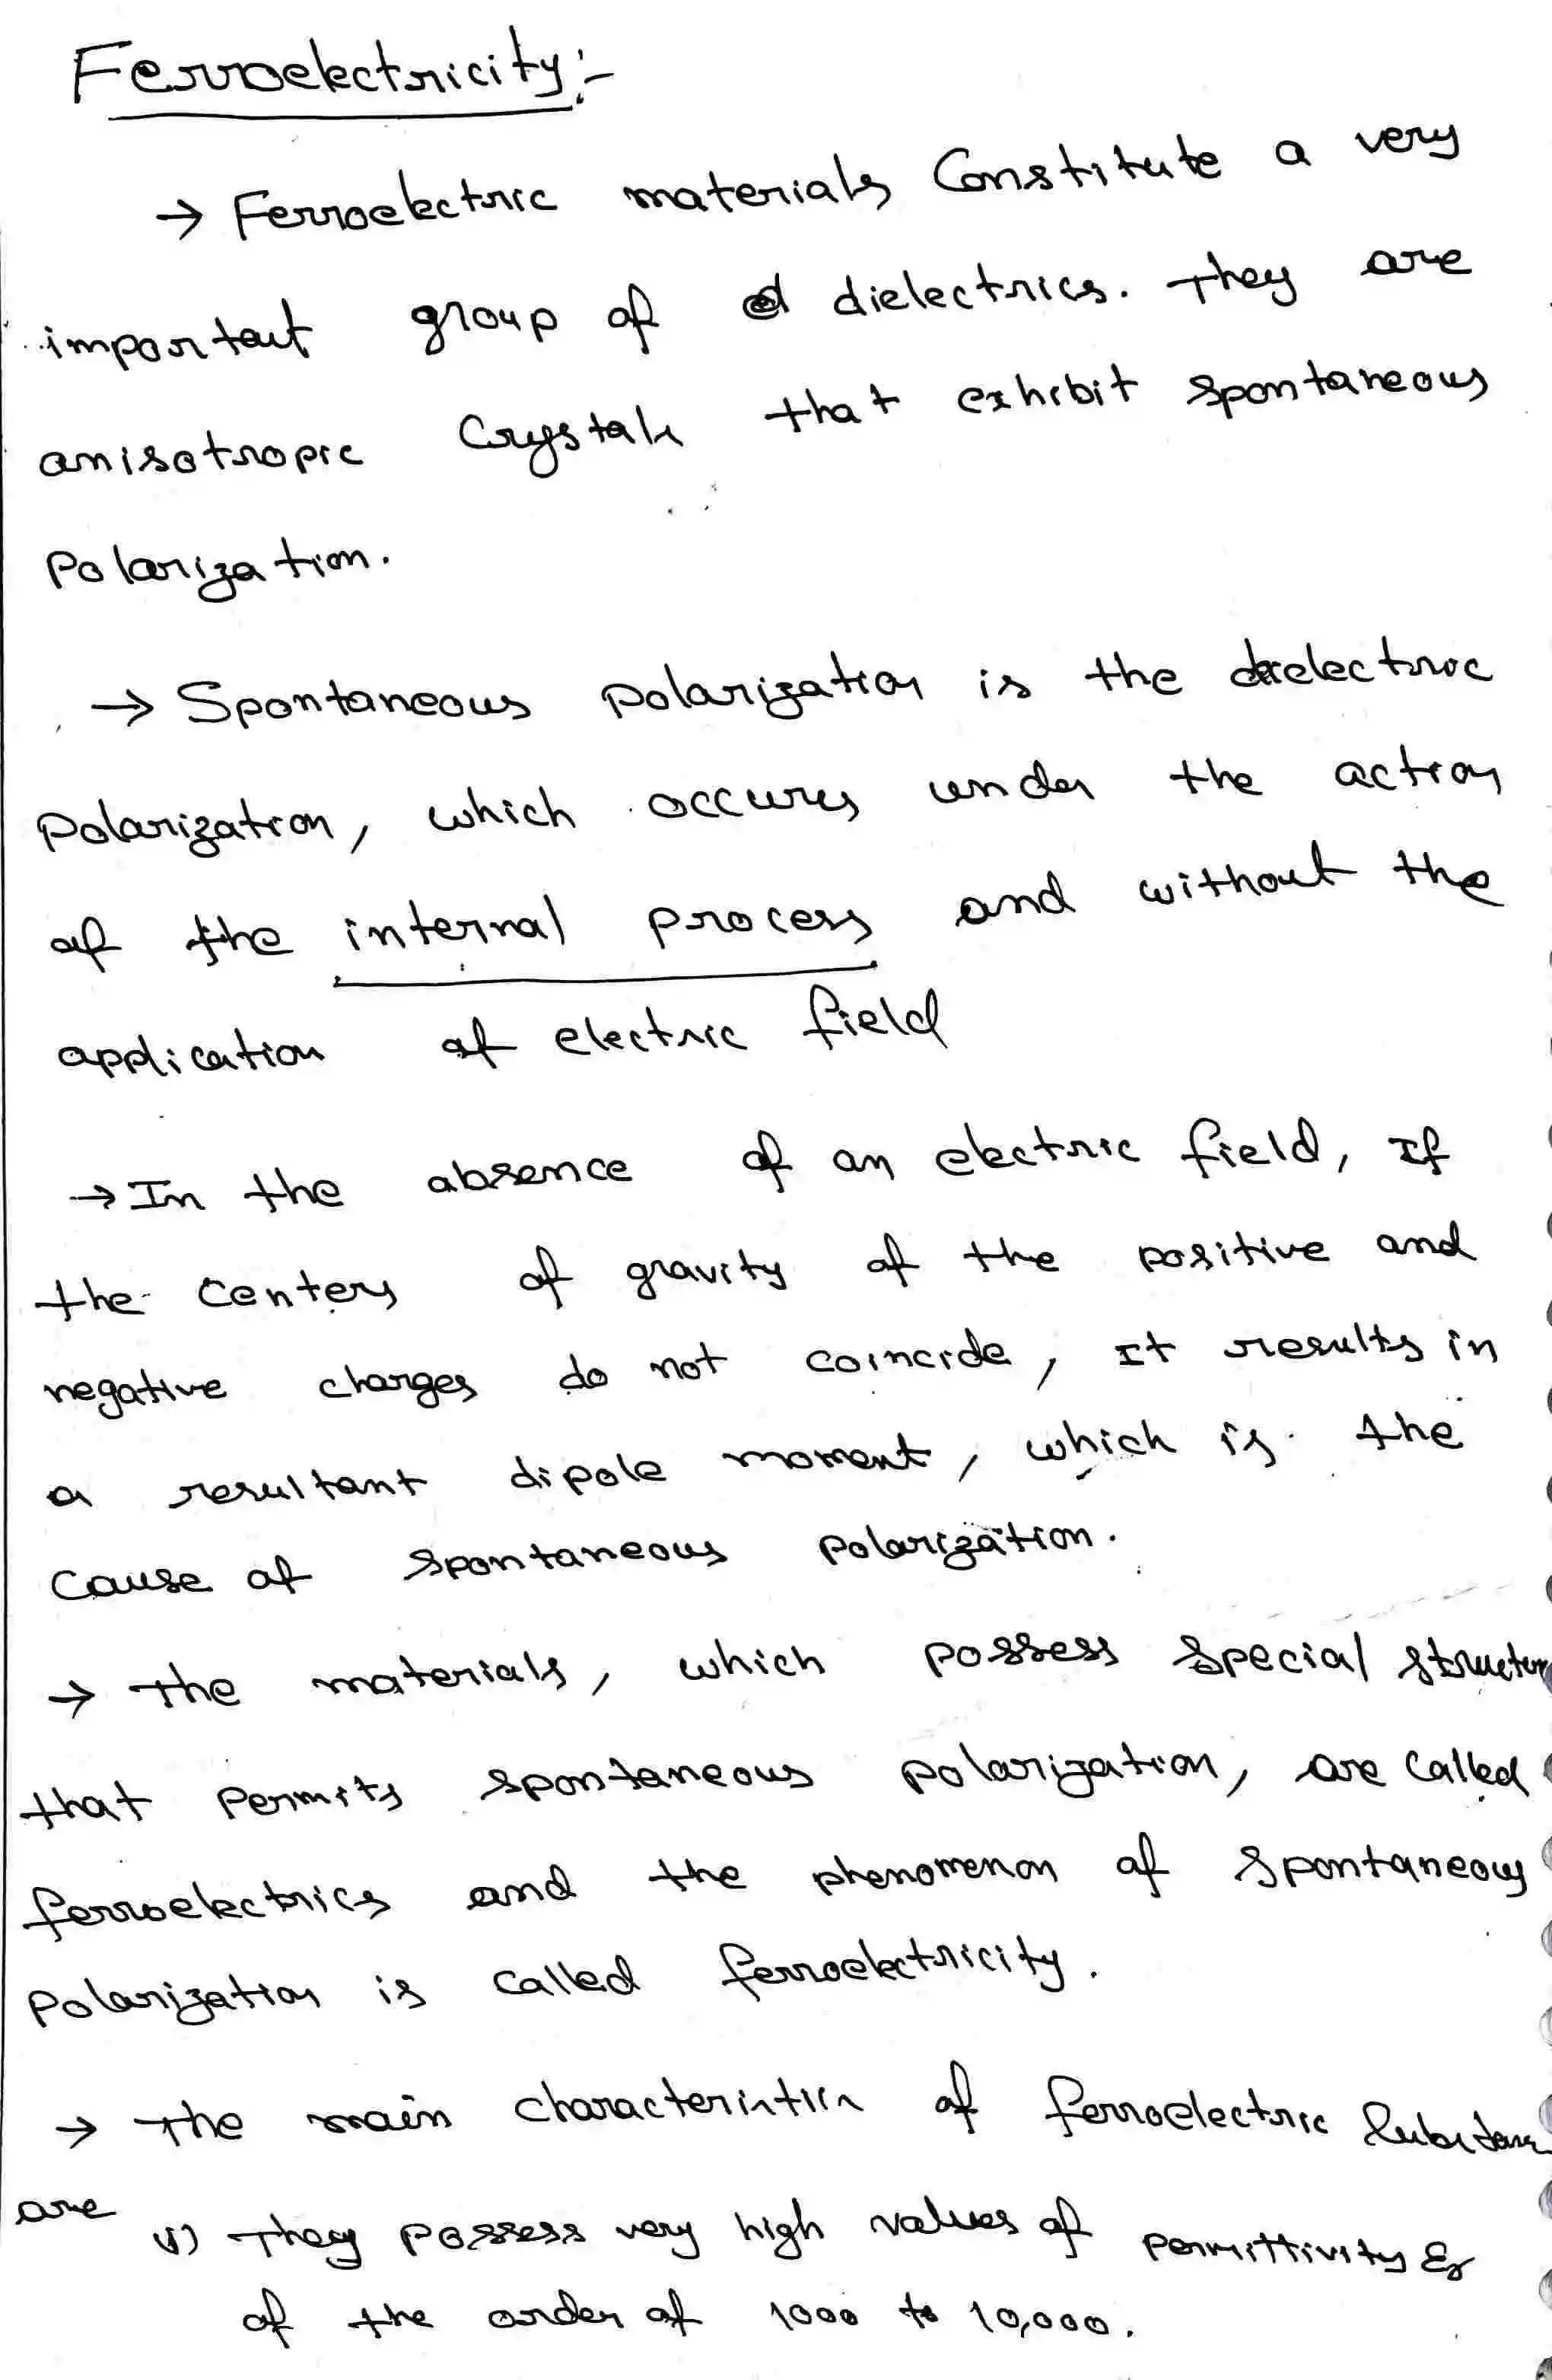 Ferroelectricity:-
→ Ferroelectric materials Constitute a very
important group of dielectrics. They are
anisotropic Crystals that exhibit Spontaneous
Polarization.
→ Spontaneous polarization is the dielectric
Polarization, which occures under the action
of the internal process and without the
application of electric field
→ In the absence of an electric field, If
the Centers of gravity of the positive and
negative charges do not coincide, It results in
a resultant dipole moment, which is the
Cause of Spontaneous polarization.
→ The materials, which possess Special Structure
that Permits spontaneous polarization, are Called
ferroelectrics and the phenomenon of Spontaneous
Polarization is Called ferroelectricity.
→ The main characteristics of ferroelectric Substance
are
(i) They possess very high values of permittivity εr
of the order of 1000 to 10,000.